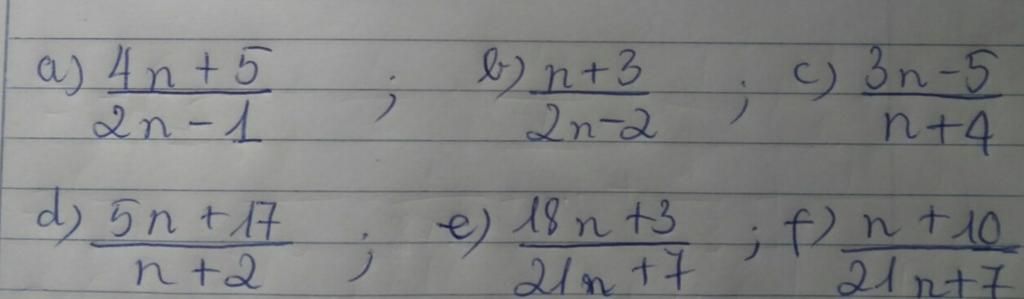 a) 4n+5/2n-1 ; b) n+3/2n-2 ; c) 3n-5/n+4
d) 5n+17/n+2 ; e) 18n+3/21n+7 ; f) n+10/21n+7